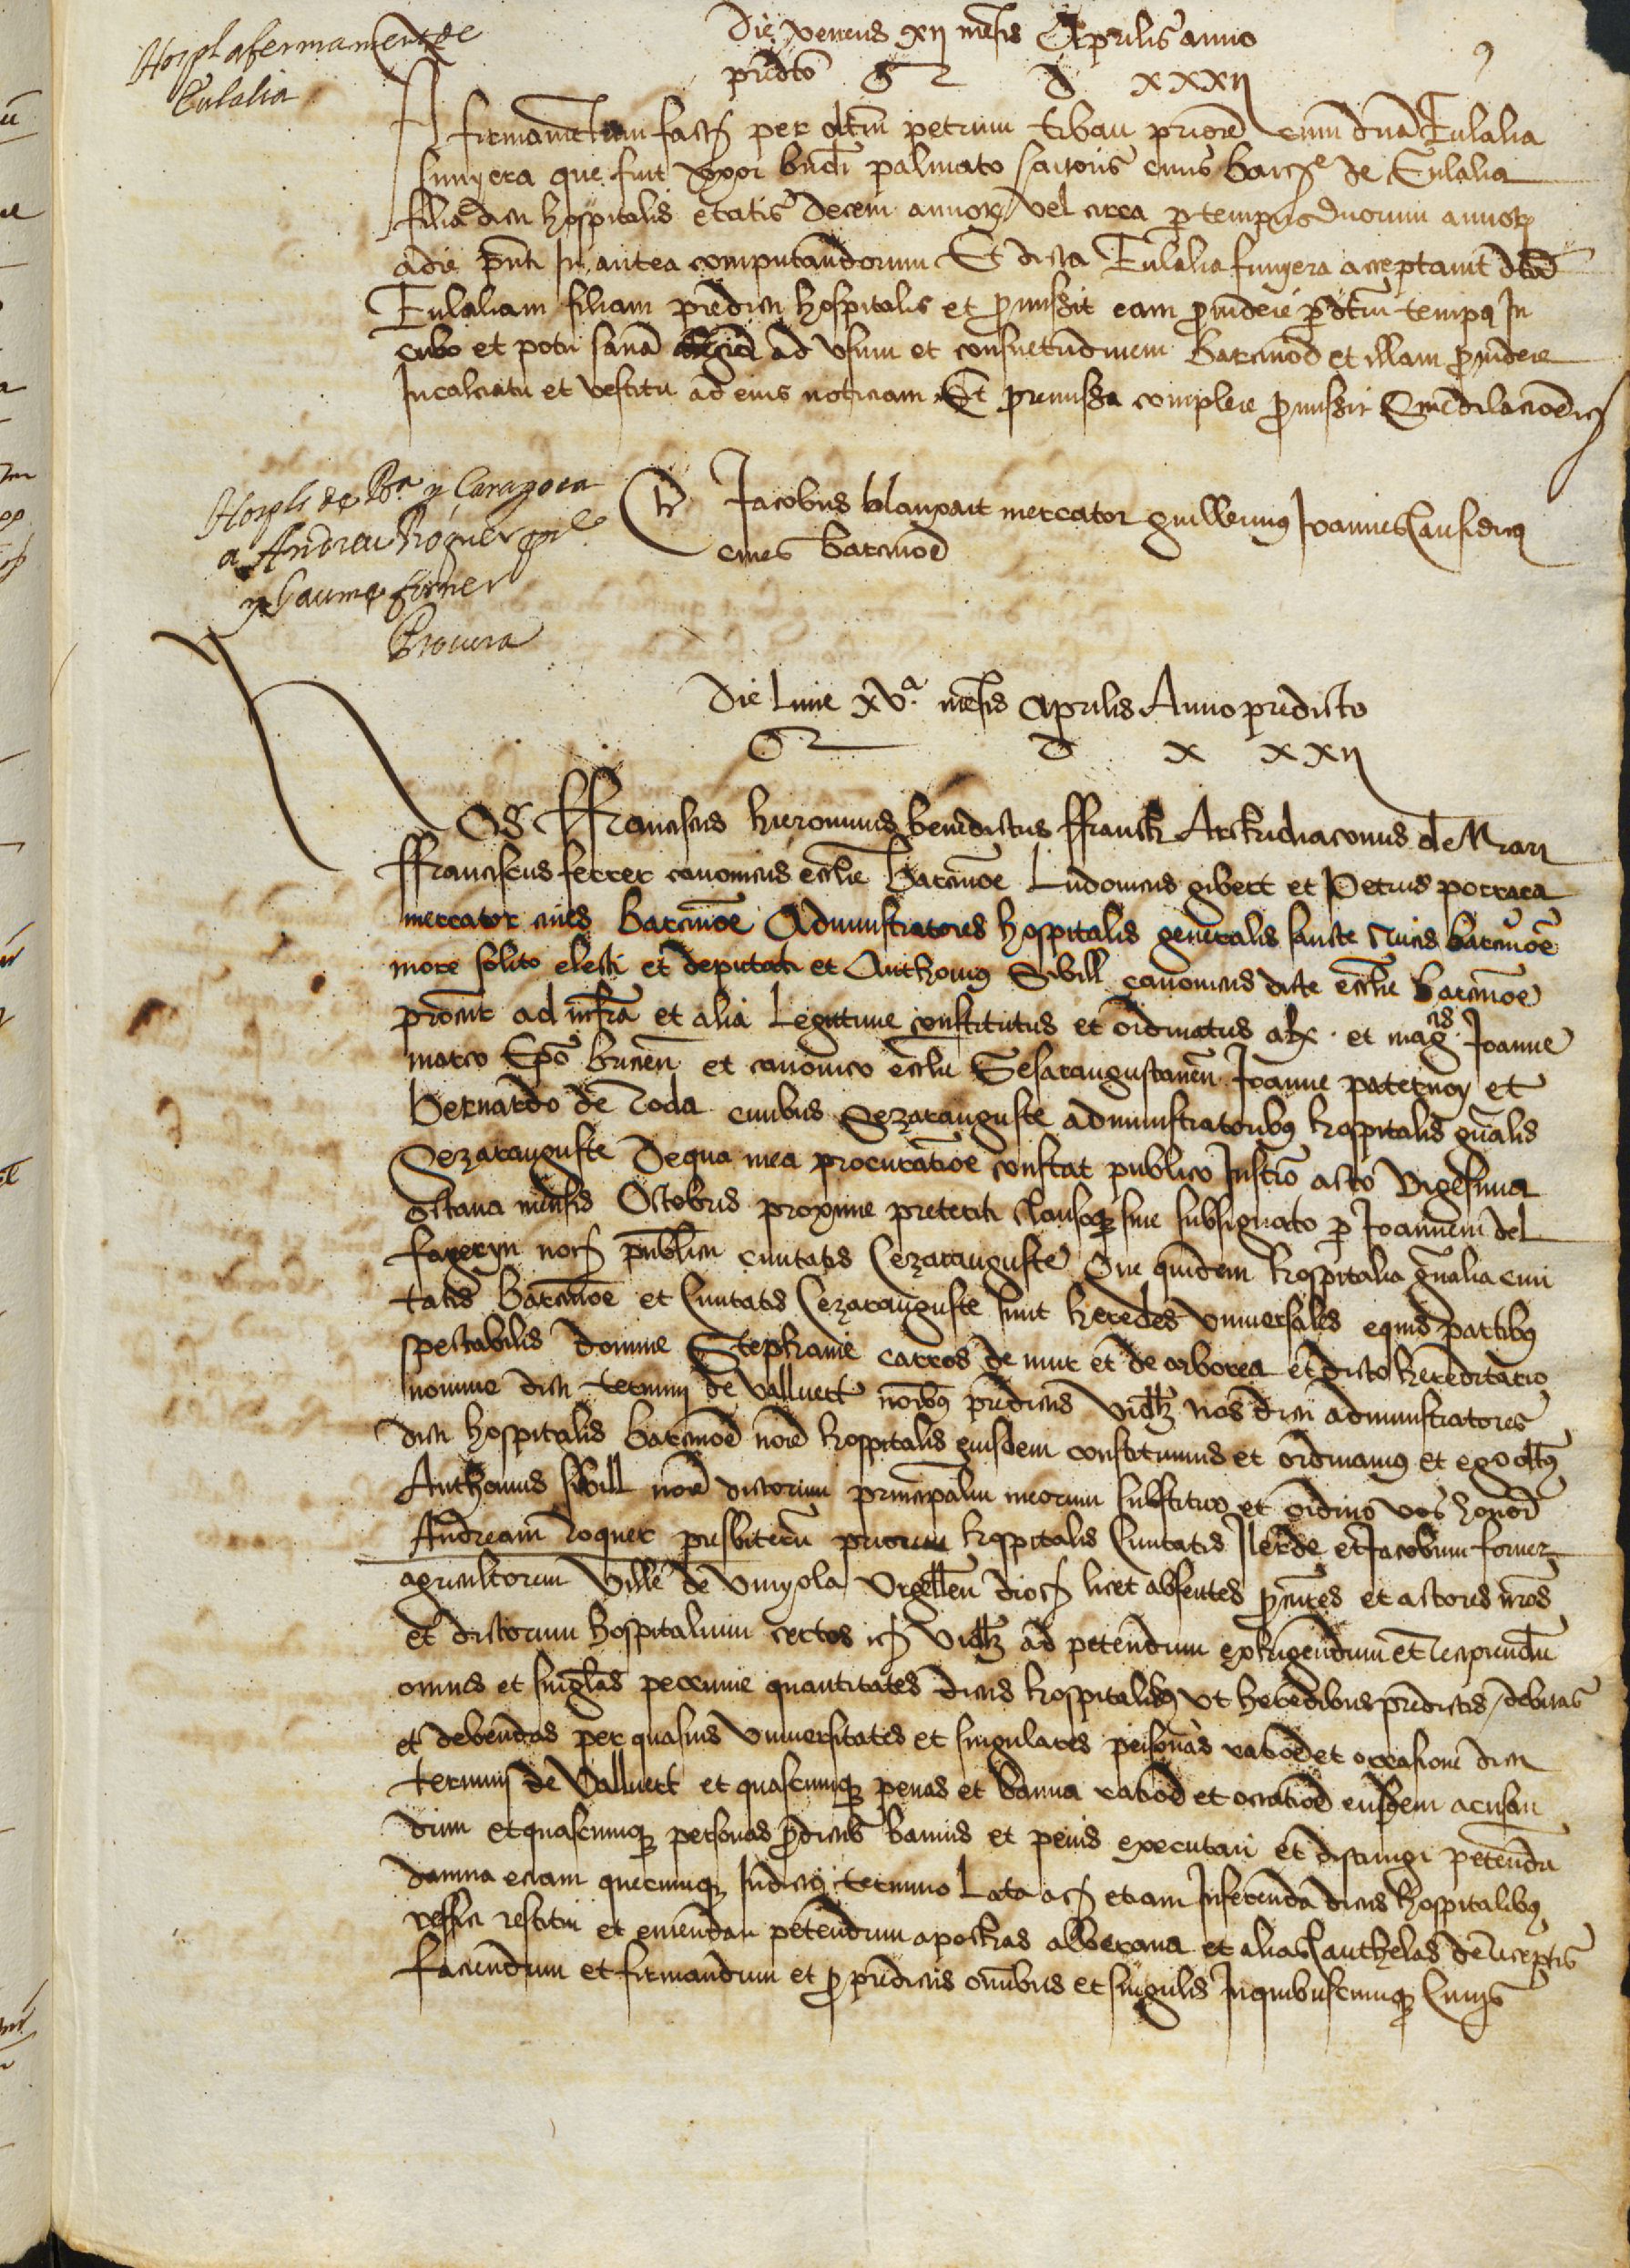 Die veneris xii mensis Aprilis anno
predicto M D xxxii
Hospl afermament de
Eulalia
Afirmamentum factum per dictum petrum tibau priorem cum domina Eulalia
sunyera que fuit uxor benedicti palmato sartoris civis barcinone de Eulalia
filia dicti hospitalis etatis decem annorum vel circa per tempus duorum annorum
a die presenti in antea computandorum Et dicta Eulalia sunyera acceptavit dictam
Eulaliam filiam predicti hospitalis et promissit eam providere per dictum tempus In
cibo et potu sanam ad usum et consuetudinem Barcinone et illam providere
In calciatu et vestitu ad eius noticiam Et premissa complere promissit sine dilacione etc
Hospls de Bna y Caragoça
a Andreu Roquer pre
y Jaume forner
Procura
Ts Jacobus blanpait mercator guillermus Joannes Causidicus
cives barcinone
Die lune xva mensis Aprilis Anno predicto
M D x xxii
Nos Ffranciscus hieronimus benedictus ffranch Archidiaconus de Mari
ffranciscus ferrer canonicus ecclesie Barcinone Ludovicus gibert et Petrus porrara
mercator cives Barcinone Administratores hospitalis generalis sancte Crucis barcinone
more solito electi et deputati et Anthonius Sivill canonicus dicte ecclesie barcinone
procurator ad infra et alia Legittime constitutus et ordinatus ab et magcis Joanne
marco Epo et canonico ecclesie Cesaraugustanen Joanne paternoy et
Bernardo de Roda civibus Cezarauguste administratoribus hospitalis generalis
Cezarauguste De qua mea procuratione constat publico Instrumento acto Vigesima
octava mensis Octobris proxime preteriti clausoque sive subsignato per Joannem del
notarium publicum civitatis Cezarauguste Que quidem hospitalia generalia civi
tatis Barcinone et Civitatis Cezarauguste sunt heredes universales equis partibus
spectabilis domine Stephanie carros de mur et de arborea et dicto hereditario
nomine dicti termini de vallvert nominibus predictis videlicet nos dicti administratores
dicti hospitalis barcinone nomine hospitalis eiusdem constituimus et ordinamus et ego dictus
Anthonius sivill nomine dictorum principalium meorum substituo et ordino vos honorabiles
Andream Roquer presbiterum priorem hospitalis Civitatis Ilerde et Jacobum forner
agricultorem Ville de Vinyola Urgellen diocesis licet absentes procuratores et actores nostros
et dictorum hospitalium certos etc videlicet ad petendum exhigendum et recipiendum
omnes et singulas peccunie quantitates dictis hospitalibus ut heredibus predictis debitas
et debendas per quasvis universitates et singulares personas ratione et occasione dicti
termini de Vallvert et quascumque penas et banna ratione et occasione eiusdem acusan
dum et quascumque personas predictis bannis et penis executari et distringi petendum
damna eciam quecumque In dicto termino Lata ac etiam Inferenda dictis hospitalibus
reffici restitui et emendari petendum apochas albarana et alias Cauthelas de receptis
faciendum et firmandum et pro predictis omnibus et singulis In quibuscumque Curiis